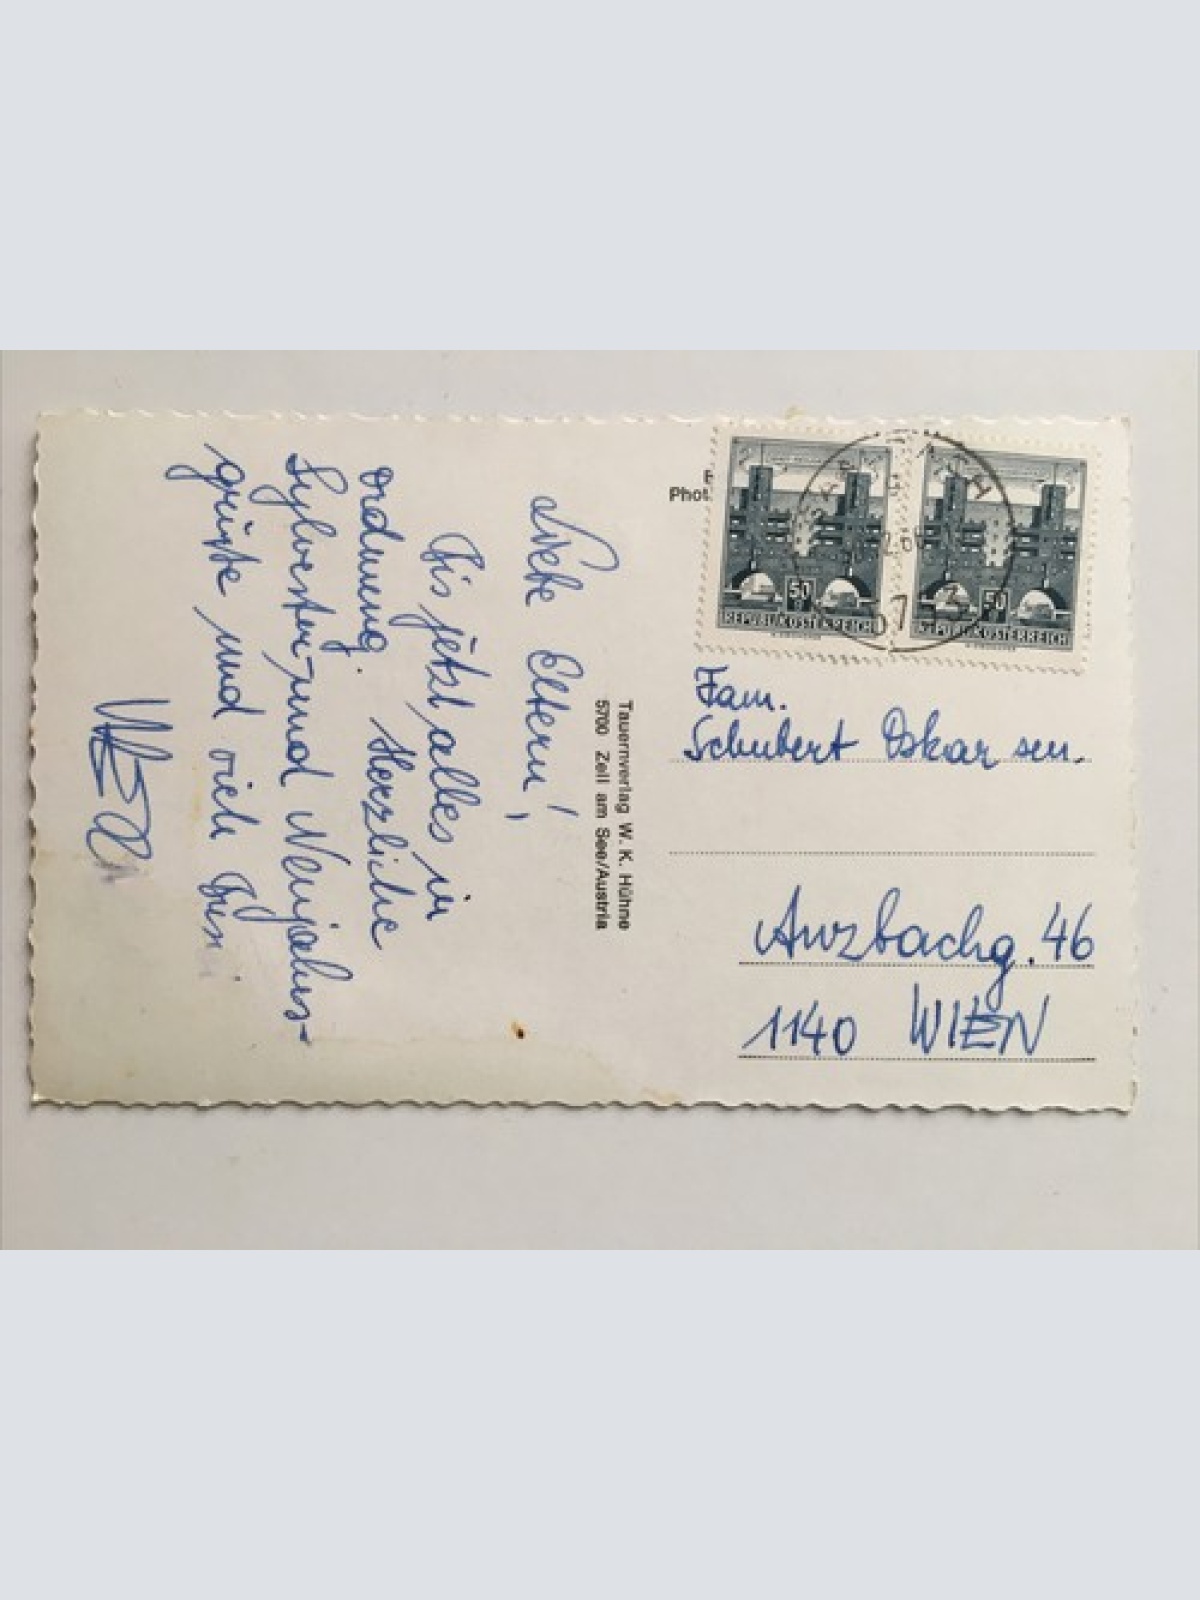 Liebe Eltern!
Bis jetzt alles in
Ordnung. Herzliche
Sylvester- und Neujahrs-
grüße und viele
Phot
Tauernverlag W. K. Hühne
5700 Zell am See/Austria
50
REPUBLIK ÖSTERREICH
50
REPUBLIK ÖSTERREICH
Fam.
Schubert Oskar sen.
Anzbachg. 46
1140 WIEN